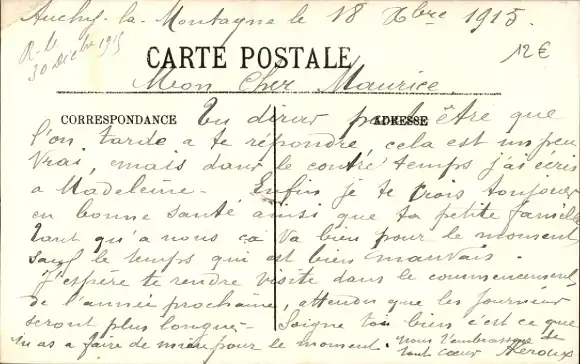 Auchy-la-Montagne le 18 Xbre 1915.
R. le
30 Decbre 1915
12€
CARTE POSTALE
Mon Cher Maurice.
CORRESPONDANCE
ADRESSE
Tu diras peut être que
l'on tarde a te répondre, cela est un peu
vrai, mais dans le contre temps j'ai écris
a Madeleine - Enfin je te crois toujours
en bonne santé ainsi que ta petite famille
tant qu'a nous ça va bien pour le moment
sauf le temps qui est bien mauvais.
J'espère te rendre visite dans le commencement
de l'année prochaine, attendu que les journées
seront plus longues - Soigne toi bien c'est ce que
tu as a faire de mieux pour le moment. nous t'embrassons de
tout coeur